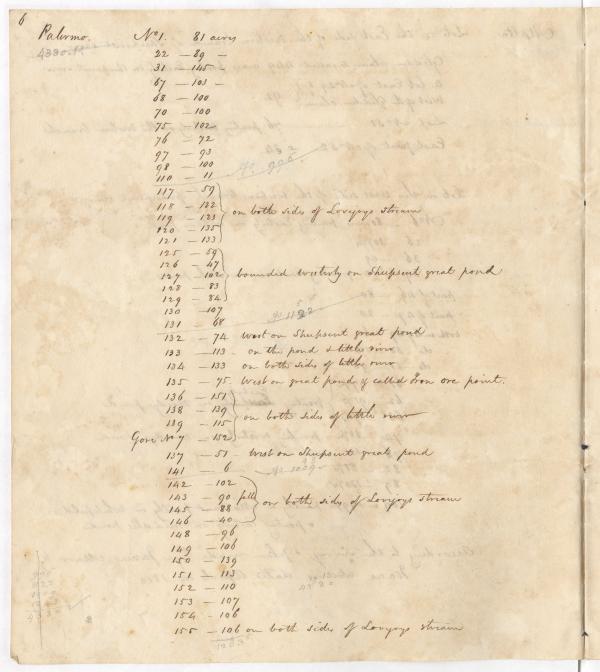 6
Palermo. No 1. 81 acres
22 — 89 —
31 — 145 —
67 — 103 —
68 — 100
70 — 100
75 — 102
76 — 72
97 — 93
98 — 100
110 — 11
117 — 59
118 — 122
119 — 123 on both sides of Lovejoys stream
120 — 135
121 — 133
125 — 59
126 — 47
127 — 102 bounded westerly on Sheepscut great pond
128 — 83
129 — 84
130 — 107
131 — 68
132 — 74 west on Sheepscut great pond
133 — 113 - on the pond & little river
134 — 133 on both sides of little river
135 — 75. West on great pond & called Iron ore point.
136 — 151
138 — 139
139 — 115 on both sides of little river
Gore No 7 — 152
137 — 51 — West on Sheepscut great pond
141 — 6
142 — 102
143 — 90 falls on both sides of Lovejoys stream
145 — 88
146 — 40
148 — 96
149 — 106
150 — 139
151 — 113
152 — 110
153 — 107
154 — 106
155 — 106 on both sides of Lovejoys stream